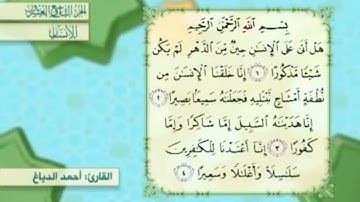 الجزء التاسع والعشرون
للأستقلال
بِسْمِ اللَّهِ الرَّحْمَٰنِ الرَّحِيمِ
هَلْ أَتَىٰ عَلَى الْإِنسَانِ حِينٌ مِّنَ الدَّهْرِ لَمْ يَكُن
شَيْئًا مَّذْكُورًا ١ إِنَّا خَلَقْنَا الْإِنسَانَ مِن
نُّطْفَةٍ أَمْشَاجٍ نَّبْتَلِيهِ فَجَعَلْنَاهُ سَمِيعًا بَصِيرًا ٢
إِنَّا هَدَيْنَاهُ السَّبِيلَ إِمَّا شَاكِرًا وَإِمَّا
كَفُورًا ٣ إِنَّا أَعْتَدْنَا لِلْكَافِرِينَ
سَلَاسِلَا وَأَغْلَالًا وَسَعِيرًا ٤
القارئ: أحمد الدباغ